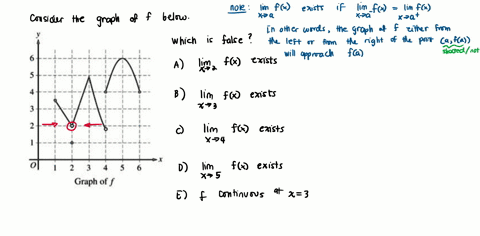 Consider the graph of f below.
note: lim x→a f(x) exists if lim x→a⁻ f(x) = lim x→a⁺ f(x)
In other words, the graph of f either from
the left or from the right of the pair (a, f(a))
will approach f(a)
shaded/not
Which is false?
A) lim x→2 f(x) exists
B) lim x→3 f(x) exists
C) lim x→4 f(x) exists
D) lim x→5 f(x) exists
E) f continuous at x=3
y
6
5
4
3
2
1
O 1 2 3 4 5 6 x
Graph of f